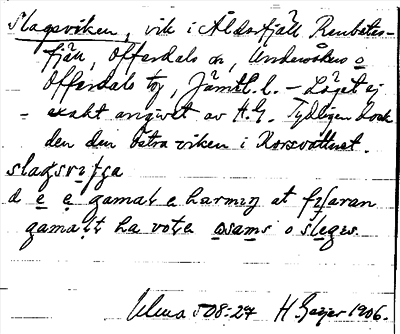 Slagsviken, vik i Åldorfjäll Renbetes-
fjäll, Offerdals sn, Undersåkers o
Offerdals tg, Jämtl. l. – Läget ej
exakt angivet av H.G. Tydligen dock
den den östra viken i Korsvattnet.
slagsvifga
d e e gamat e harmeŋ at fifaran
gamatt ha vote osams o sleges.
Ulma 508:27 H Geijer 1906.